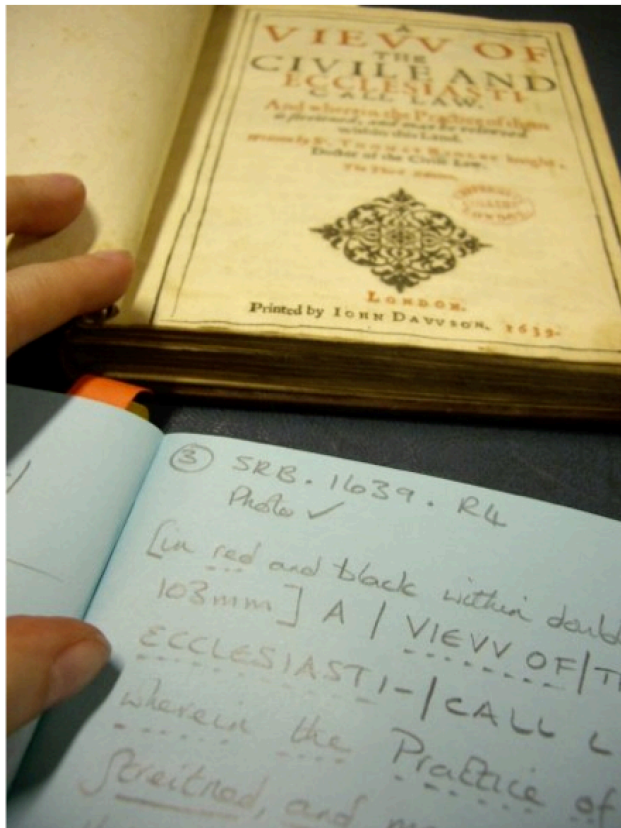 A
VIEVV OF
THE
CIVILE AND
ECCLESIASTI-
CALL LAW.
And wherein the Practice of them
is streitned, and may be releeved
within this Land.
Written by Sr. THOMAS RIDLEY Knight,
Doctor of the Civil Law.
LONDON,
Printed by IOHN DAVVSON. 1639.
③ SRB. 1639. R4
Photo ✓
[in red and black within doubl
103mm] A | VIEVV OF | T
ECCLESIASTI-| CALL L
wherein the Practice of
streitned, and